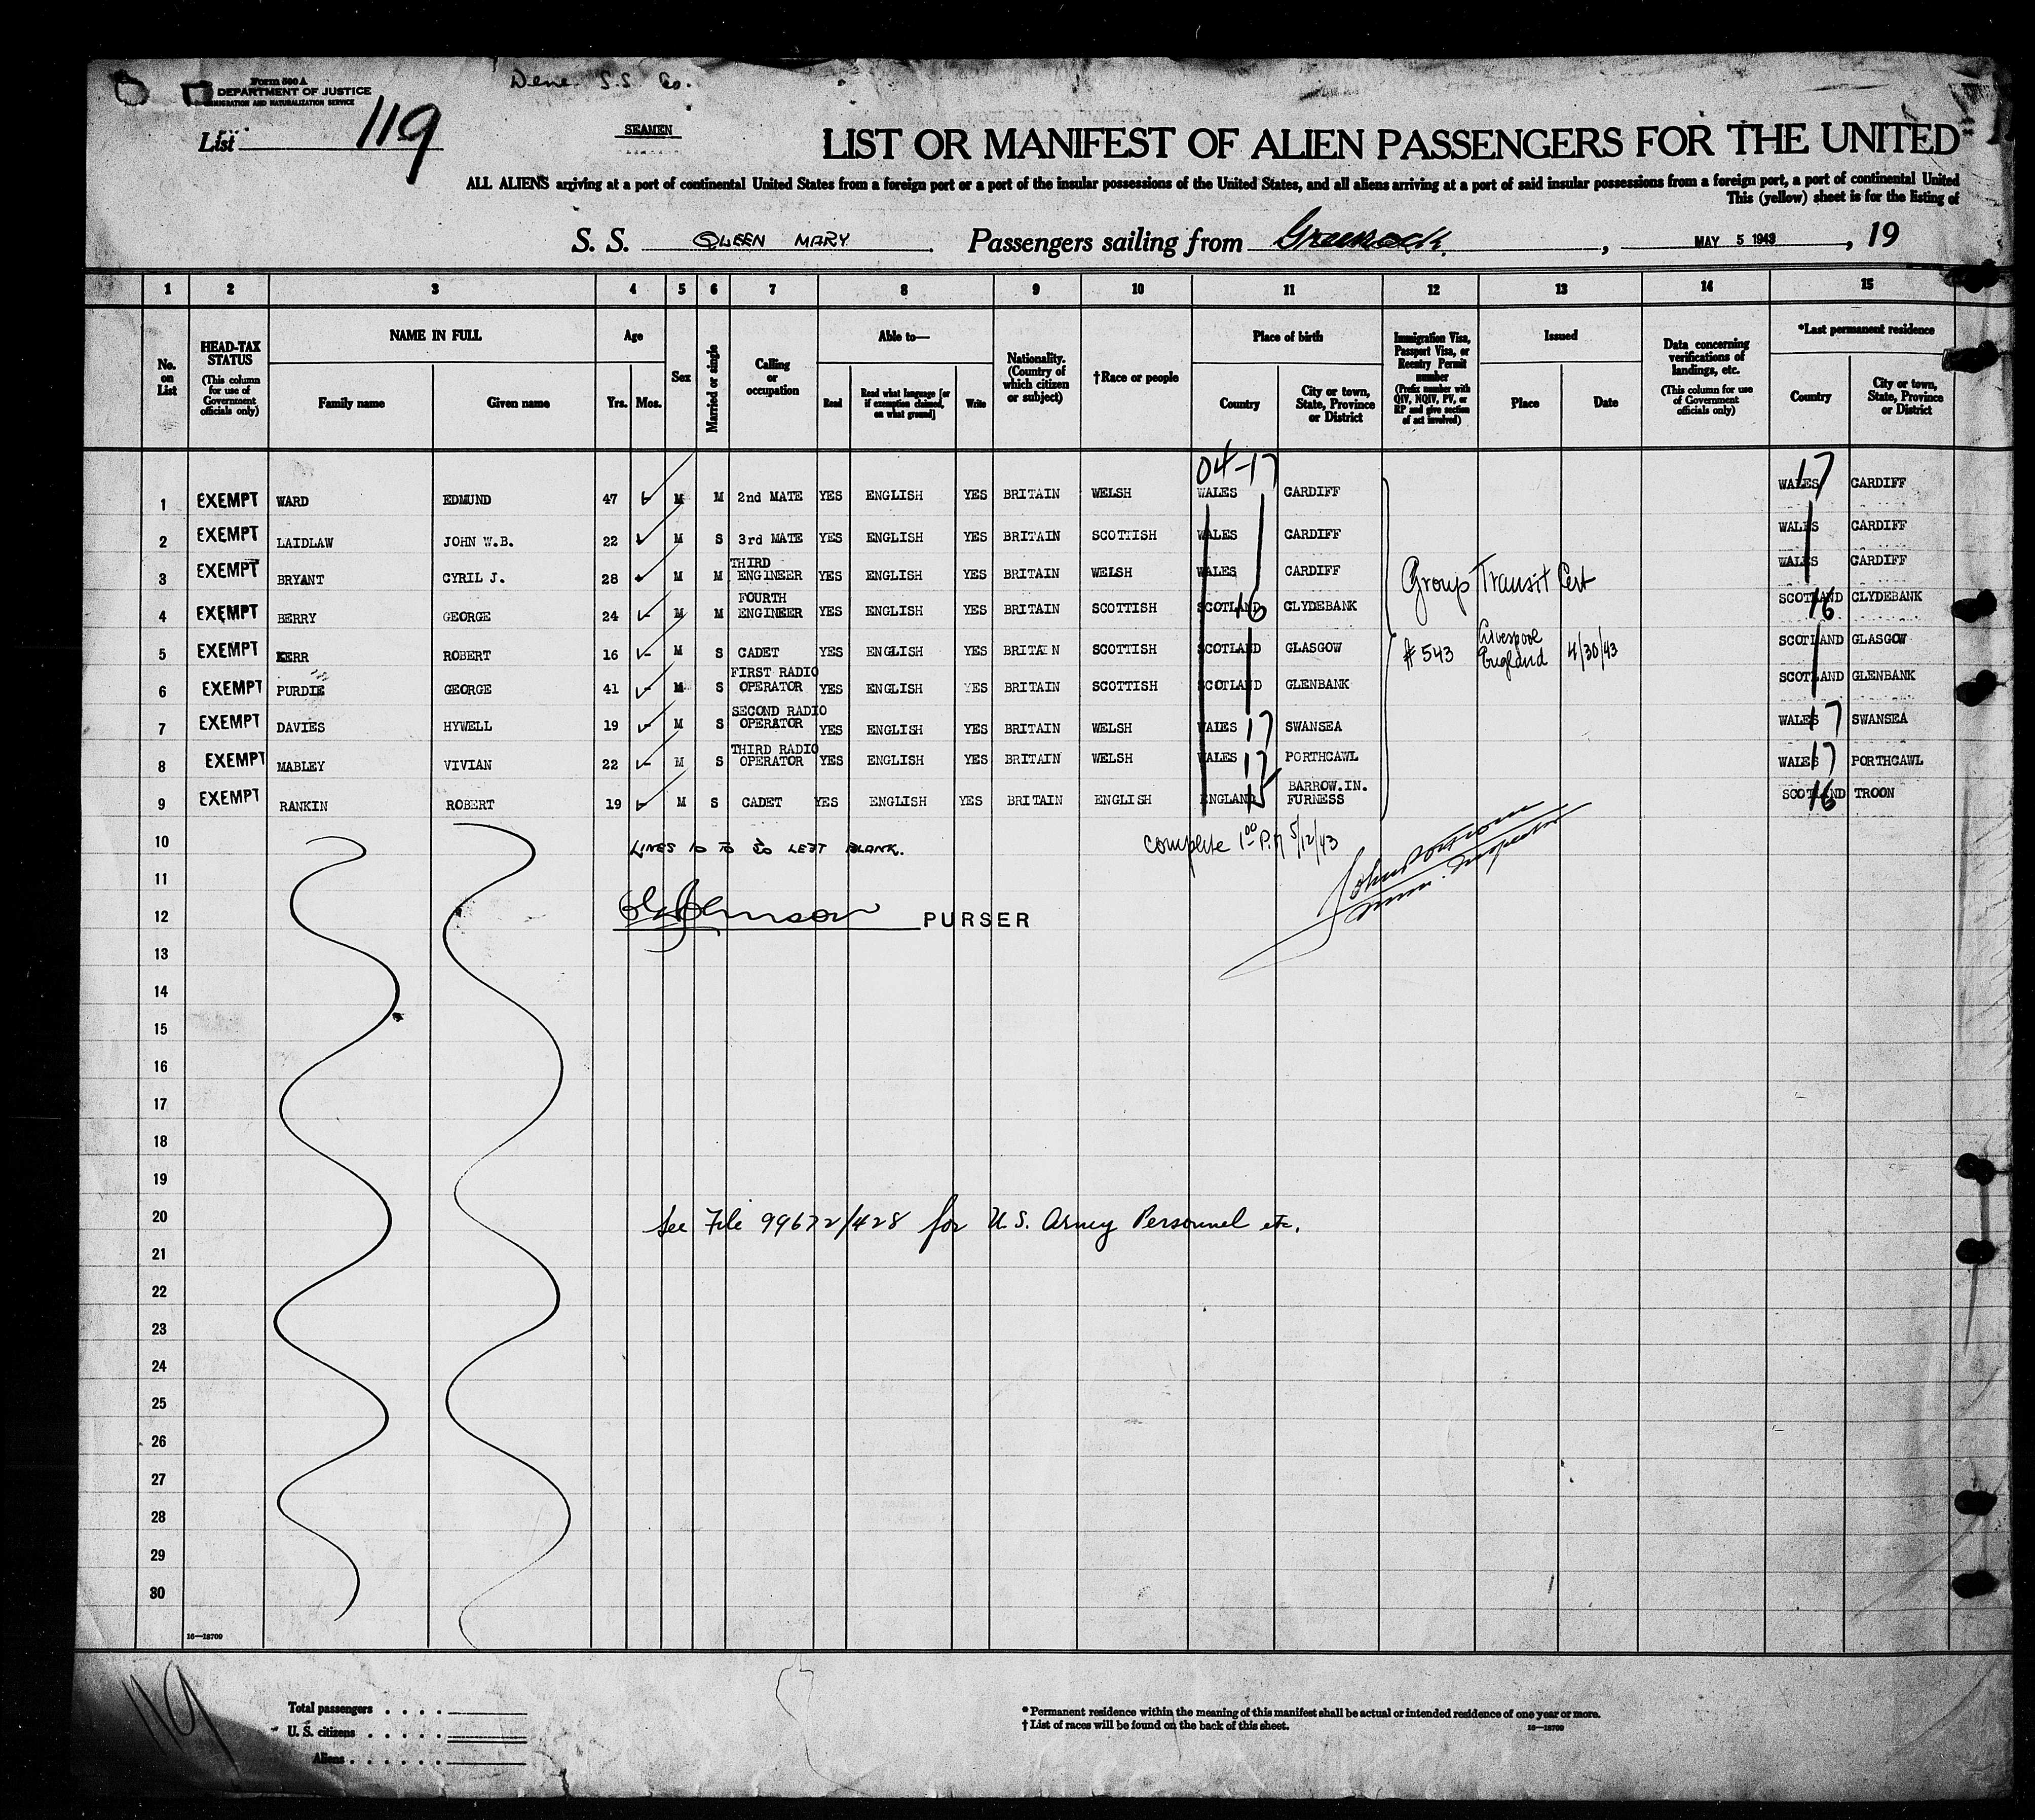 Form 500 A
DEPARTMENT OF JUSTICE
IMMIGRATION AND NATURALIZATION SERVICE
Dene S.S. Co.
List 119
SEAMEN
LIST OR MANIFEST OF ALIEN PASSENGERS FOR THE UNITED
ALL ALIENS arriving at a port of continental United States from a foreign port or a port of the insular possessions of the United States, and all aliens arriving at a port of said insular possessions from a foreign port, a port of continental United
This (yellow) sheet is for the listing of
S. S. QUEEN MARY. Passengers sailing from Greenock, MAY 5 1943, 19
1 2 3 4 5 6 7 8 9 10 11 12 13 14 15
No. on List
HEAD-TAX STATUS (This column for use of Government officials only)
NAME IN FULL
Family name Given name
Age
Yrs. Mos.
Sex
Married or single
Calling or occupation
Able to—
Read
Read what language [or if exemption claimed, on what ground]
Write
Nationality. (Country of which citizen or subject)
†Race or people
Place of birth
Country
City or town, State, Province or District
Immigration Visa, Passport Visa, or Reentry Permit number (Prefix number with QIV, NQIV, PV, or RP and give section of act involved)
Issued
Place Date
Data concerning verifications of landings, etc. (This column for use of Government officials only)
*Last permanent residence
Country
City or town, State, Province or District
04-17 17
1 EXEMPT WARD EDMUND 47 M M 2nd MATE YES ENGLISH YES BRITAIN WELSH WALES CARDIFF WALES CARDIFF
2 EXEMPT LAIDLAW JOHN W.B. 22 M S 3rd MATE YES ENGLISH YES BRITAIN SCOTTISH WALES CARDIFF WALES CARDIFF
3 EXEMPT BRYANT CYRIL J. 28 M M THIRD ENGINEER YES ENGLISH YES BRITAIN WELSH WALES CARDIFF WALES CARDIFF
Group Transit Cert
4 EXEMPT BERRY GEORGE 24 M M FOURTH ENGINEER YES ENGLISH YES BRITAIN SCOTTISH SCOTLAND 16 CLYDEBANK SCOTLAND 16 CLYDEBANK
5 EXEMPT KERR ROBERT 16 M S CADET YES ENGLISH YES BRITAIN SCOTTISH SCOTLAND GLASGOW # 543 Liverpool England 4/30/43 SCOTLAND GLASGOW
6 EXEMPT PURDIE GEORGE 41 M S FIRST RADIO OPERATOR YES ENGLISH YES BRITAIN SCOTTISH SCOTLAND GLENBANK SCOTLAND GLENBANK
7 EXEMPT DAVIES HYWELL 19 M S SECOND RADIO OPERATOR YES ENGLISH YES BRITAIN WELSH WALES 17 SWANSEA WALES 17 SWANSEA
8 EXEMPT MABLEY VIVIAN 22 M S THIRD RADIO OPERATOR YES ENGLISH YES BRITAIN WELSH WALES 17 PORTHCAWL WALES 17 PORTHCAWL
9 EXEMPT RANKIN ROBERT 19 M S CADET YES ENGLISH YES BRITAIN ENGLISH ENGLAND 15 BARROW.IN. FURNESS SCOTLAND 16 TROON
10 LINES 10 TO 30 LEFT BLANK. complete 1 00 P.M 5/12/43
11
12 Johnson PURSER Imm. Inspector
13
14
15
16
17
18
19
20 See File 99672/428 for U.S. Army Personnel etc.
21
22
23
24
25
26
27
28
29
30
16—18709
119
Total passengers . . . .
U. S. citizens . . . . .
Aliens . . . . . .
* Permanent residence within the meaning of this manifest shall be actual or intended residence of one year or more.
† List of races will be found on the back of this sheet. 16—18709